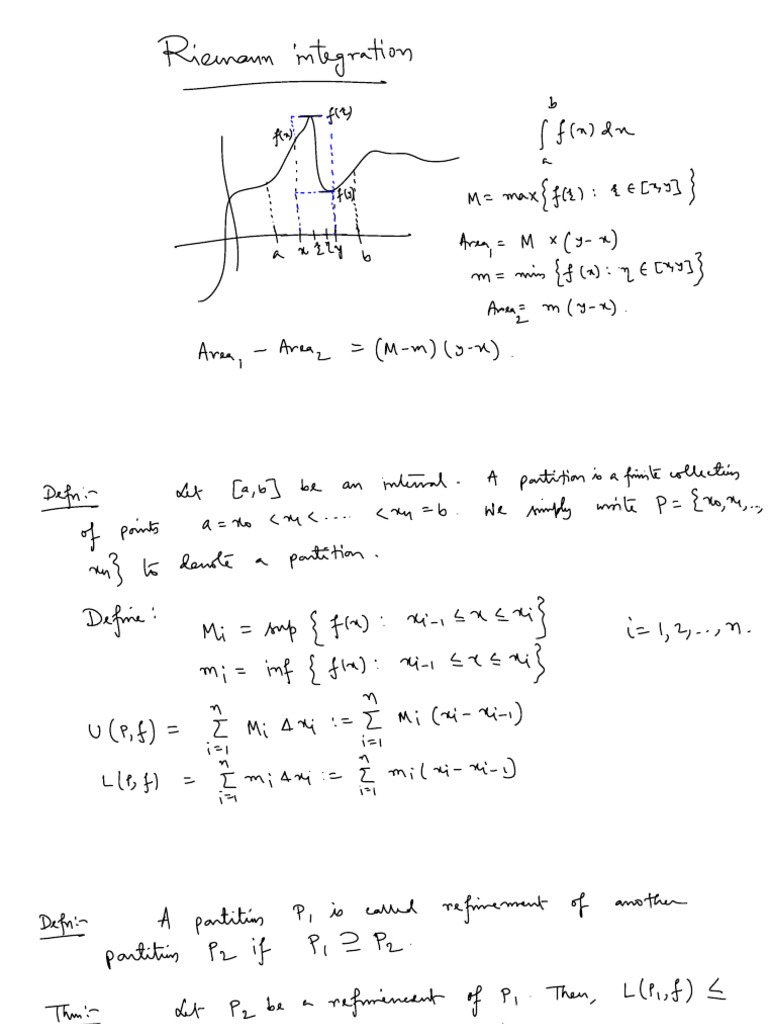 Riemann integration
f(ξ)
f(x)
f(y)
a x ξ η y b
∫_a^b f(x) dx
M = max{f(ξ) : ξ ∈ [x,y]}
Area₁ = M × (y-x)
m = min{f(x) : η ∈ [x,y]}
Area₂ = m (y-x).
Area₁ - Area₂ = (M-m) (y-x).
Defn:- Let [a,b] be an interval. A partition is a finite collection
of points a = x₀ < x₁ < .... < xₙ = b. We simply write P = {x₀, x₁, ..,
xₙ} to denote a partition.
Define: Mᵢ = sup { f(x) : xᵢ₋₁ ≤ x ≤ xᵢ} i = 1, 2, .., n.
mᵢ = inf { f(x) : xᵢ₋₁ ≤ x ≤ xᵢ}
U(P,f) = ∑_{i=1}^n Mᵢ Δxᵢ := ∑_{i=1}^n Mᵢ (xᵢ - xᵢ₋₁)
L(P,f) = ∑_{i=1}^n mᵢ Δxᵢ := ∑_{i=1}^n mᵢ (xᵢ - xᵢ₋₁)
Defn:- A partition P₁ is called refinement of another
partition P₂ if P₁ ⊇ P₂.
Thm:- Let P₂ be a refinement of P₁. Then, L(P₁,f) ≤